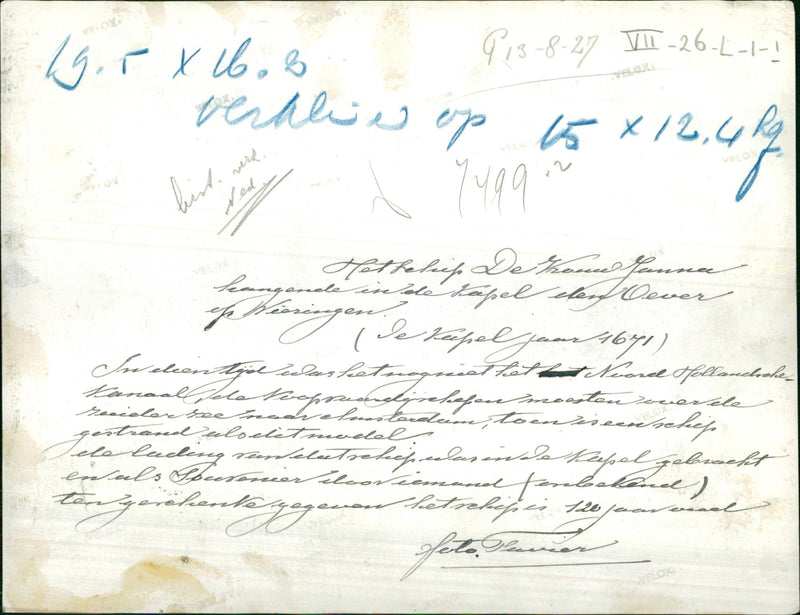 P 13-8-27 VII-26-L-1-1
19.5 x 16.3
verklein op 15 x 12.4 hg.
7499.2
Ned.
Het schip De Vrouw Janna
hangende in de Kapel den Oever
op Wieringen.
(De Kapel jaar 1671)
In dien tijd was het nog niet het Noord Hollandsche-
Kanaal, de Koopvaardyschepen moesten over de
zuider zee naar Amsterdam, toen is een schip
gestrand als dit model
de lading van dat schip was in de Kapel gebracht
en als Souvenier door iemand (onbekend)
ten geschenke gegeven het schip is 120 jaar oud
foto.
VELOX